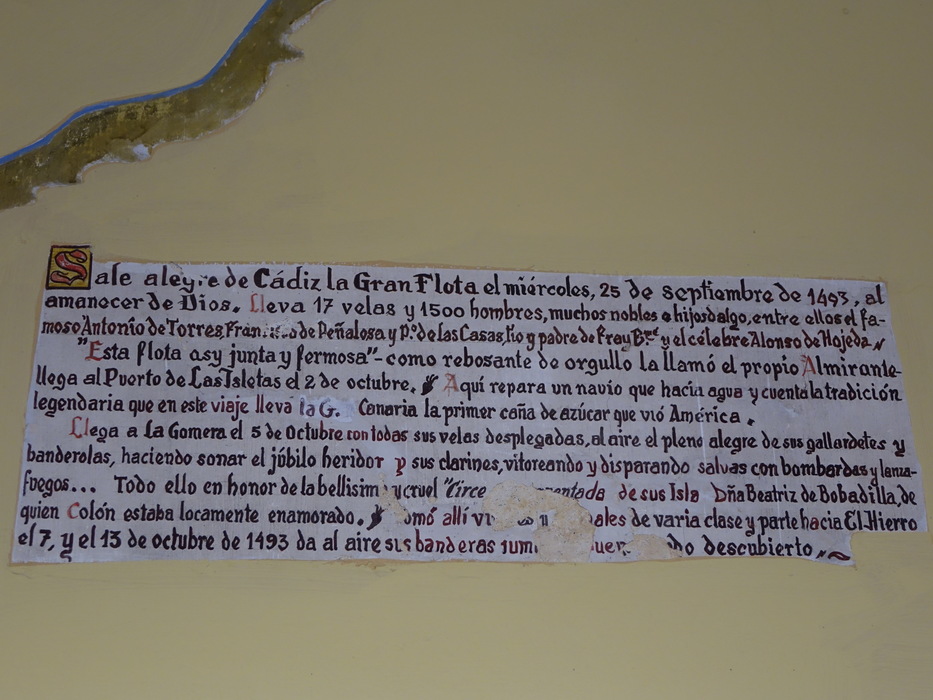 Sale alegre de Cádiz la Gran Flota el miércoles, 25 de septiembre de 1493, al
amanecer de Dios. Lleva 17 velas y 1500 hombres, muchos nobles e hijosdalgo, entre ellos el fa-
moso Antonio de Torres, Francisco de Peñalosa y P.º de las Casas, tio y padre de Fray B.mé y el célebre Alonso de Hojeda
"Esta flota asy junta y fermosa"- como rebosante de orgullo la llamó el propio Almirante-
llega al Puerto de Las Isletas el 2 de octubre. Aquí repara un navío que hacía agua y cuenta la tradición
legendaria que en este viaje lleva la G. Canaria la primer caña de azúcar que vió América.
Llega a La Gomera el 5 de Octubre con todas sus velas desplegadas, al aire el pleno alegre de sus gallardetes y
banderolas, haciendo sonar el júbilo heridor y sus clarines, vitoreando y disparando salvas con bombardas y lanza-
fuegos... Todo ello en honor de la bellisim y cruel "Circe de sus Isla Dña Beatriz de Bobadilla, de
quien Colón estaba locamente enamorado. omó allí de varia clase y parte hacia El Hierro
el 7, y el 13 de octubre de 1493 da al aire sus banderas descubierto